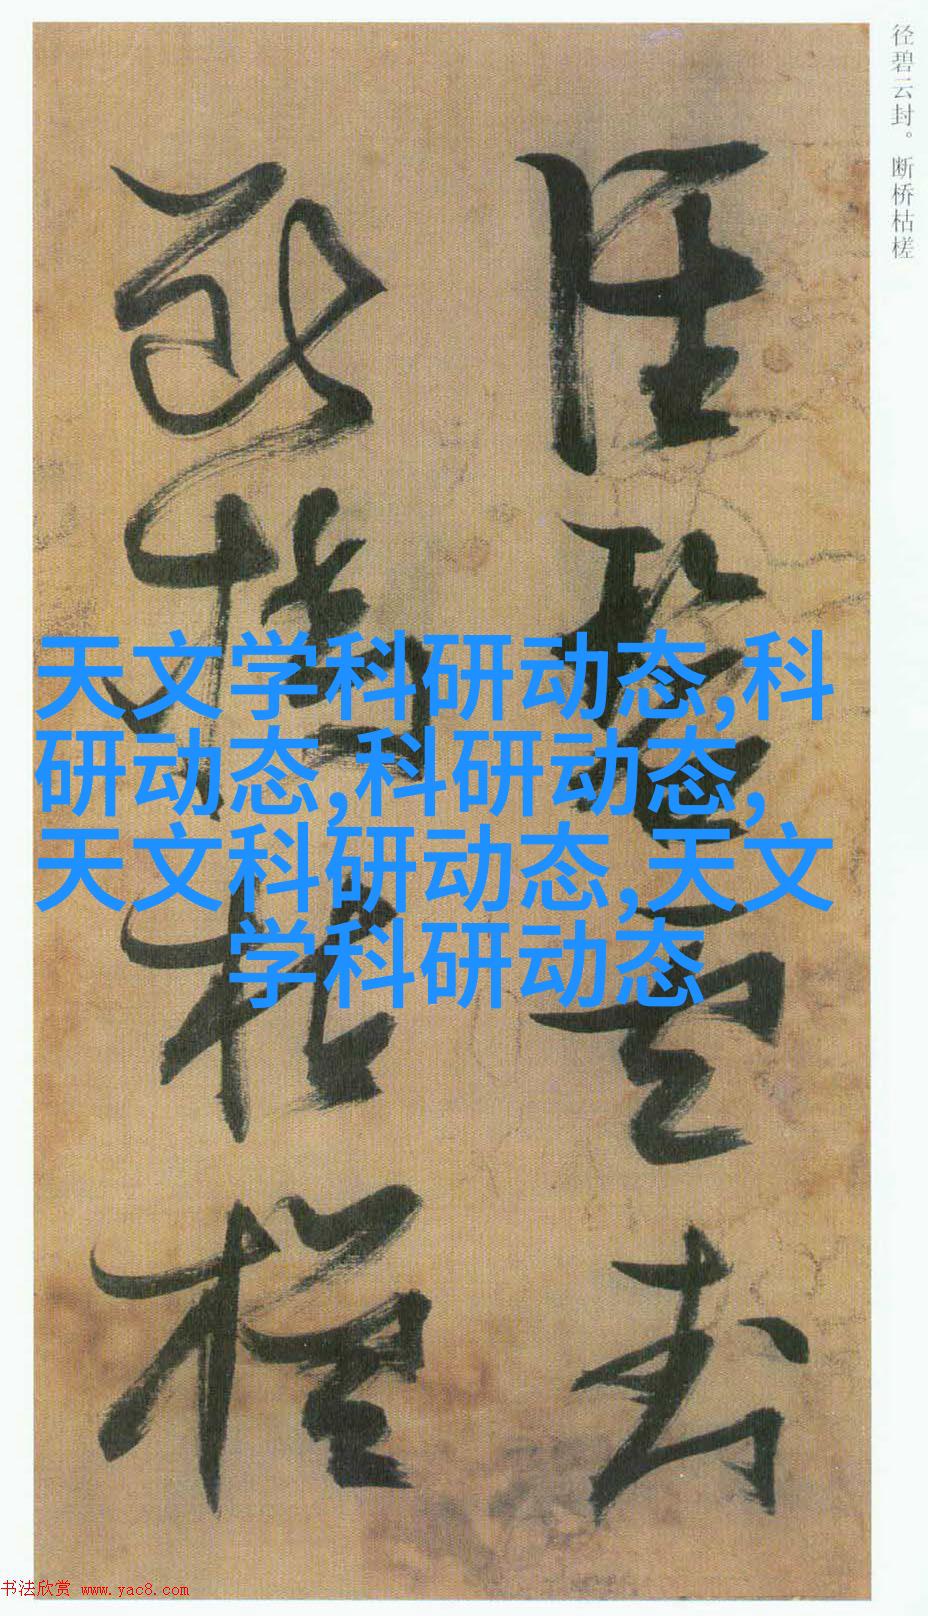 径碧云封。断桥枯槎
径碧云封
断桥枯槎
天文学科研动态,科
研动态,科研动态,
天文科研动态,天文
学科研动态
书法欣赏 www.yac8.com